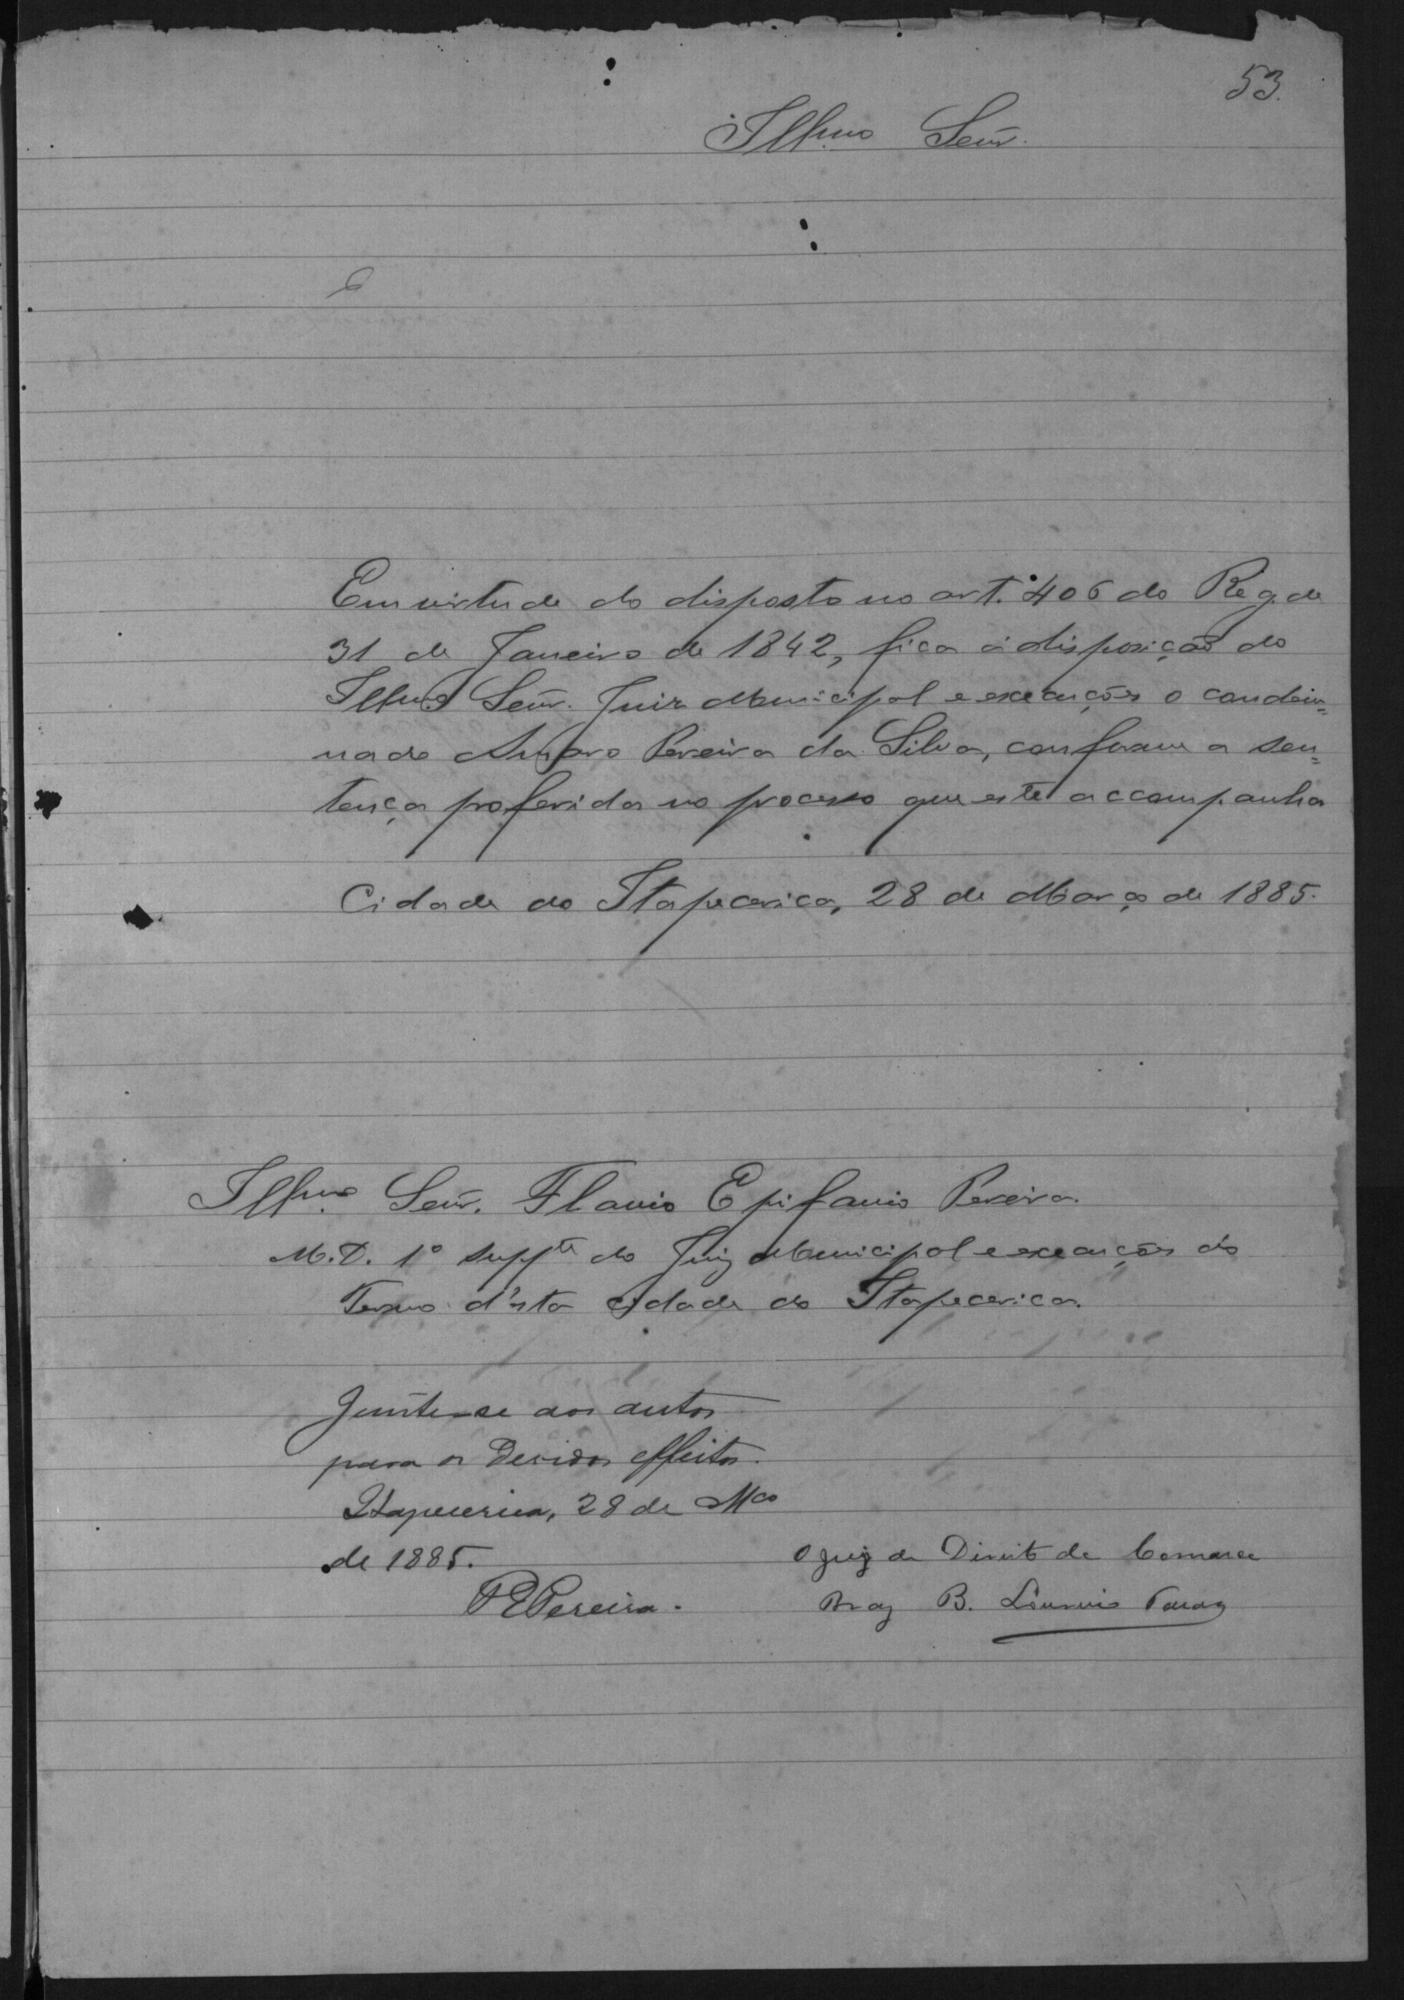 53.
Illmo Senr.
Em virtude do disposto no art. 406 do Reg. de
31 de Janeiro de 1842, fica á disposição do
Illmo Senr. Juiz Municipal e execuções o condem=
nado Amaro Pereira da Silva, conforme a sen=
tença proferida no processo que este accompanha
Cidade do Itapecerica, 28 de Março de 1885.
Illmo Senr. Flavio Epifanio Pereira.
M.D. 1º suppte do Juiz Municipal e execuções do
Termo d'esta cidade do Itapecerica.
Junte-se aos autos
para os devidos effeitos.
Itapecerica, 28 de Mço
de 1885.
Pereira.
O Juiz de Direito da Comarca
Braz B.